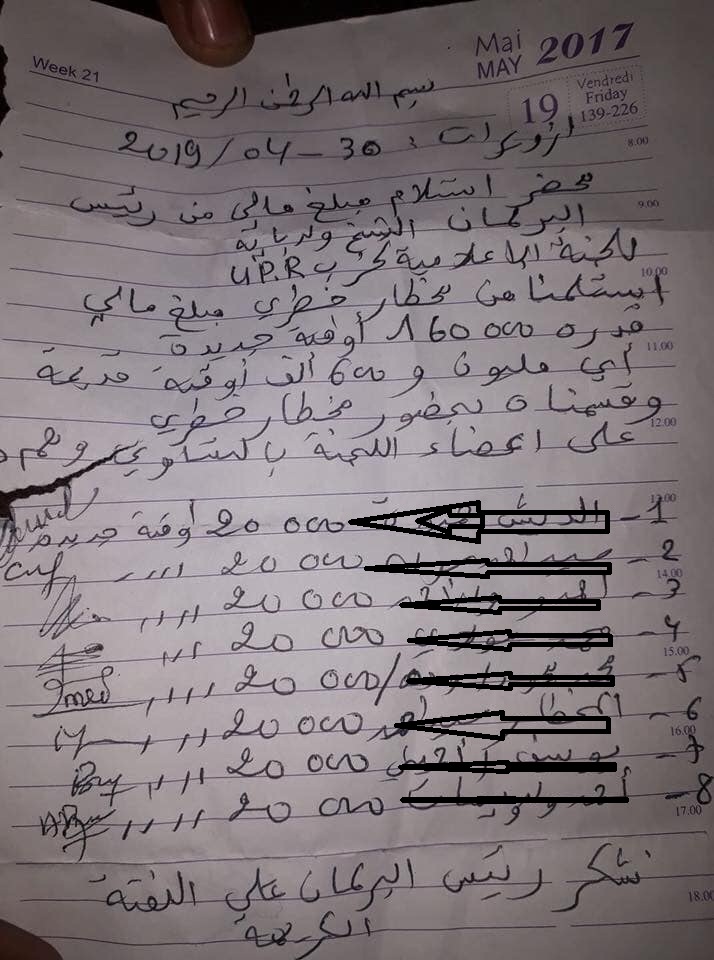 Week 21
Mai
MAY 2017
19 Vendredi
Friday
139-226
بسم الله الرحمن الرحيم
ازويرات : 30-04/2019
8:00
محضر استلام مبلغ مالي من رئيس
9.00
البرلمان الشيخ ولد بايه
للجنة الإعلامية لحزب U.P.R
10.00
استلمنا من مخطار خطري مبلغ مالي
قدره 160 000 أوقية جديدة
11.00
أي مليون و 600 ألف أوقية قديمة
وقسمناه بحضور مخطار خطري
12.00
على اعضاء اللجنة بالتساوي وهم
13.00
1 - 20 000 أوقية جديدة
2 - 20 000 ,,,,
14.00
3 - 20 000 ,,,,
4 - 20 000 ,,,
15.00
5 - 20 000 ,,,,
6 - 20 000 ,,,
16.00
7 - يوسف 20 000 ,,,,
8 - 20 000 ,,,,
17.00
نشكر رئيس البرلمان علي اللفتة
18.00
الكريمة